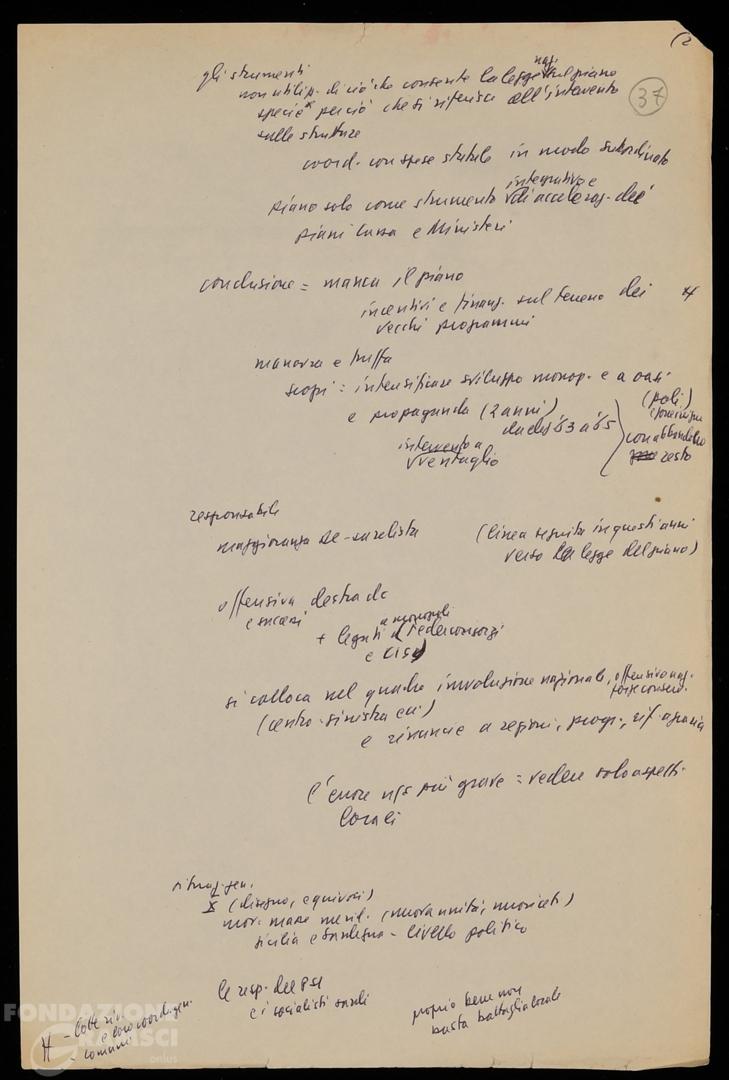 (2
37
gli strumenti
non utilizz. di ciò che consente la legge naz. sul piano
specie per ciò che si riferisce all'intervento
sulle strutture
coord. con spese statale in modo subordinato
piano solo come strumento integrativo e di acceleraz. dei
piani Cassa e Ministeri
conclusione = manca il piano
incentivi e finanz. sul terreno dei
vecchi programmi
manovra e truffa
scopi = intensificare sviluppo monop. e a oasi
(poli)
e propaganda (2 anni)
dal '63 a '65
con abbandono
resto
intervento a
ventaglio
responsabile
maggioranza dc-sardista
(linea seguita in questi anni
verso la legge del piano)
offensiva destra dc
e
+ legati a monopoli Federconsorzi
e CISL
si colloca nel quadro involuzione nazionale, offensiva naz.
forze conserv.
(centro-sinistra ecc)
e rinuncie a regioni, progr., rif. agraria
l'errore ns più grave = vedere solo aspetti
locali
situaz. gen.
(disegno, equivoci)
mov. masse merid. (nuova unità, nuovi ceti)
Sicilia e Sardegna - livello politico
le resp. del PSI
e i socialisti sardi
proprio bene non
basta battaglia locale
- lotte
e loro coord. gen.
- comuni
FONDAZIONE
GRAMSCI
onlus